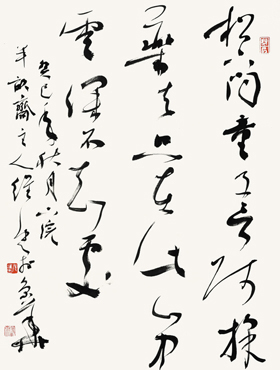 松下問童子言師採
藥去只在此山中
雲深不知處
癸巳年秋月
齋主人於京華